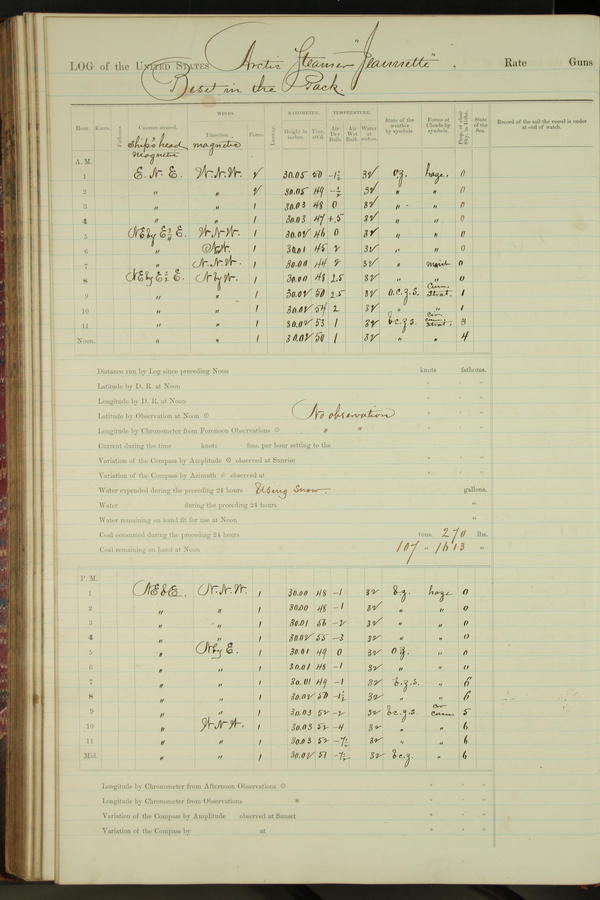 LOG of the UNITED STATES Arctic Steamer "Jeannette". Rate Guns
Beset in the Pack
WINDS. BAROMETER. TEMPERATURE.
Hour. Knots. Fathoms Courses steered. Direction. Force. Leeway. Height in inches. Ther. att'd Air Dry Bulb. Air Wet Bulb. Water at surface. State of the weather by symbols. Forms of Clouds by symbols. State of the Sea. Record of the sail the vessel is under at end of watch.
Ship's head magnetic
magnetic
A. M.
1 E. N. E. W. N. W. 2 30.05 50 32 o.z. haze. 0
2 " " 2 30.05 49 32 " " 0
3 " " 1 30.03 48 0 32 " " 0
4 " " 1 30.03 47 +.5 32 " " 0
5 NE by E ½ E. W. N. W. 1 30.02 46 0 32 " " 0
6 " N.W. 1 30.01 45 2 32 " " 0
7 " N. N. W. 1 30.00 44 2 32 " 0
8 NE by E ½ E. N by W. 1 30.00 48 2.5 32 " " 0
9 " " 1 30.02 50 2.5 32 o.c.z.s. Cum. Strat. 1
10 " " 1 30.02 54 2 32 " " 1
11 " " 1 30.02 53 1 32 b.c.z.s. Cir. cum. Strat. 3
Noon. " " 1 30.02 50 1 32 " " 4
Distance run by Log since preceding Noon knots fathoms.
Latitude by D. R. at Noon
Longitude by D. R. at Noon
Latitude by Observation at Noon No observation
Longitude by Chronometer from Forenoon Observations " "
Current during the time knots fms. per hour setting to the
Variation of the Compass by Amplitude observed at Sunrise
Variation of the Compass by Azimuth observed at
Water expended during the preceding 24 hours Using snow. gallons.
Water during the preceding 24 hours "
Water remaining on hand fit for use at Noon "
Coal consumed during the preceding 24 hours tons. 270 lbs.
Coal remaining on hand at Noon 107 " 1613 "
P. M.
1 NE & E. N. N. W. 1 30.00 48 -1 32 b.z. haze 0
2 " " 1 30.00 48 -1 32 " " 0
3 " " 1 30.01 56 -2 32 " " 0
4 " " 1 30.02 55 -3 32 " " 0
5 " N by E. 1 30.01 49 0 32 o.z. " 0
6 " " 1 30.01 48 -1 32 " " 0
7 " " 1 30.01 49 -1 32 b.z.s. " 6
8 " " 1 30.02 50 -1½ 32 " " 6
9 " " 1 30.03 52 -2 32 b.c.z.s. cir cum. 5
10 " N. N. W. 1 30.03 52 -4 32 " " 6
11 " " 1 30.03 52 -7½ 32 " " 6
Mid. " " 1 30.02 51 -7½ 32 b.c.z. " 6
Longitude by Chronometer from Afternoon Observations
Longitude by Chronometer from Observations
Variation of the Compass by Amplitude observed at Sunset
Variation of the Compass by at